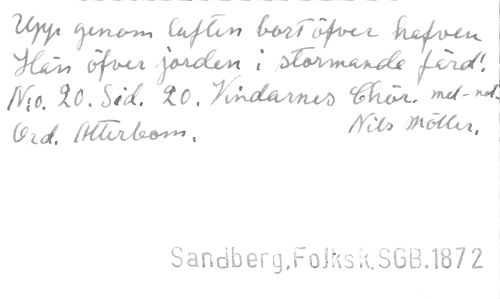 Upp genom luften bort öfver hafven
Hän öfver jorden i stormande färd!
No. 20. Sid. 20. Vindarnes Chör. mel-not.
Ord. Atterbom. Nils Möller.
Sandberg, Folksk. SGB. 1872